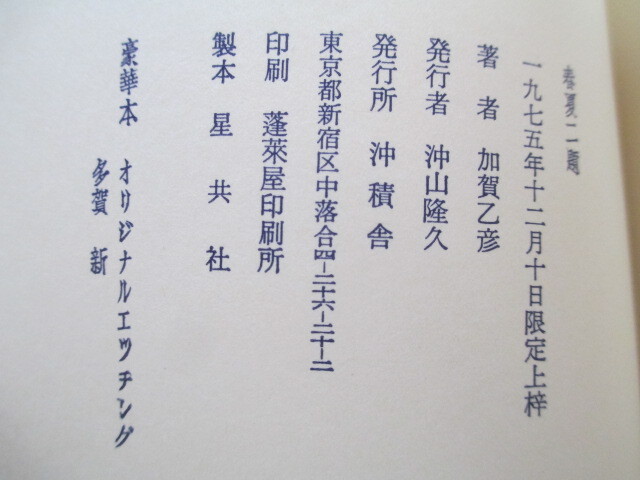 春夏二題
一九七五年十二月十日限定上梓
著者 加賀乙彦
発行者 沖山隆久
発行所 沖積舎
東京都新宿区中落合四-二十六-二十-二
印刷 蓬萊屋印刷所
製本 星共社
豪華本 オリジナルエッチング
多賀新